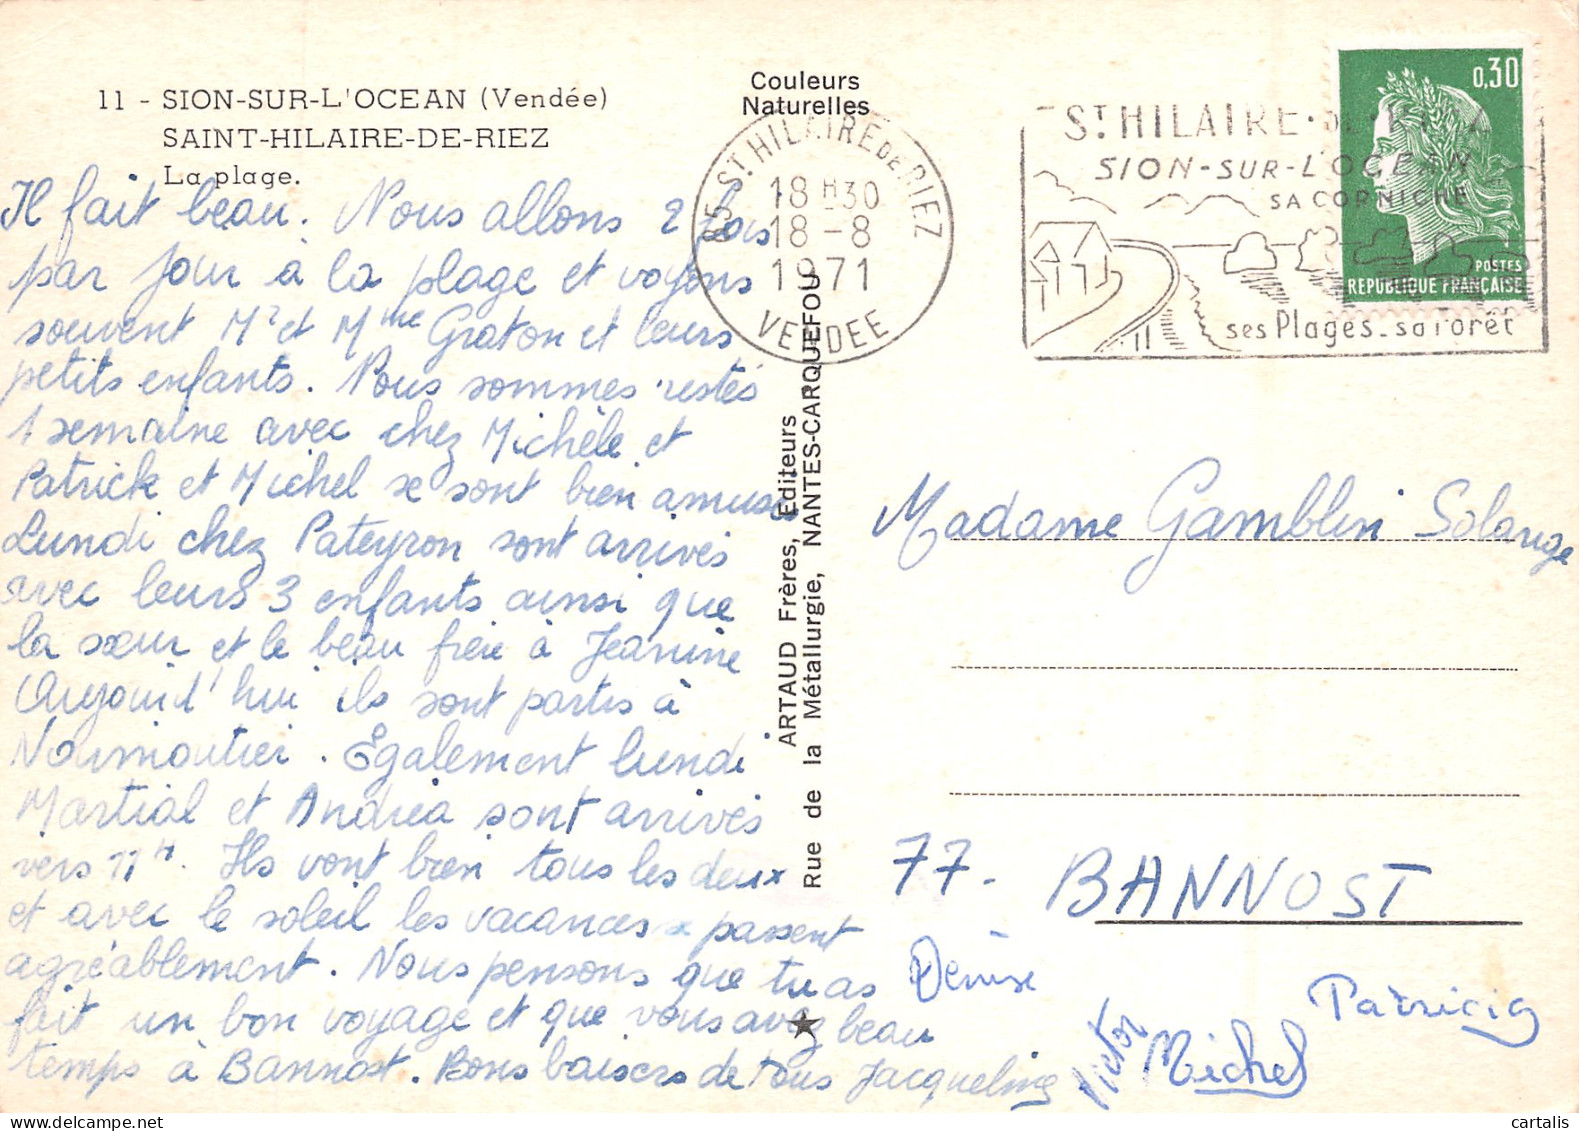 11 - SION-SUR-L'OCEAN (Vendée)
SAINT-HILAIRE-DE-RIEZ
La plage.
Il fait beau. Nous allons 2 fois
par jour à la plage et voyons
souvent Mr et Mme Graton et leurs
petits enfants. Nous sommes restés
1 semaine avec chez Michèle et
Patrick et Michel se sont bien amusés
Lundi chez Pateyron sont arrivés
avec leurs 3 enfants ainsi que
la sœur et le beau frère à Jeanine
Aujourd'hui ils sont partis à
Noirmoutier. Egalement lundi
Martial et Andréa sont arrivés
vers 11h. Ils vont bien tous les deux
et avec le soleil les vacances se passent
agréablement. Nous pensons que tu as
fait un bon voyage et que vous avez beau
temps à Bannost. Bons baisers de tous Jacqueline
Denise
Victor
Michel
Patricia
Couleurs
Naturelles
ARTAUD Frères, Editeurs
Rue de la Métallurgie, NANTES-CARQUEFOU
85 ST HILAIRE DE RIEZ
18 H 30
18 - 8
1971
VENDEE
ST HILAIRE-DE-RIEZ
SION-SUR-L'OCEAN
SA CORNICHE
ses Plages - sa Forêt
0,30
POSTES
REPUBLIQUE FRANÇAISE
Madame Gamblin Solange
77 - BANNOST
cartalis